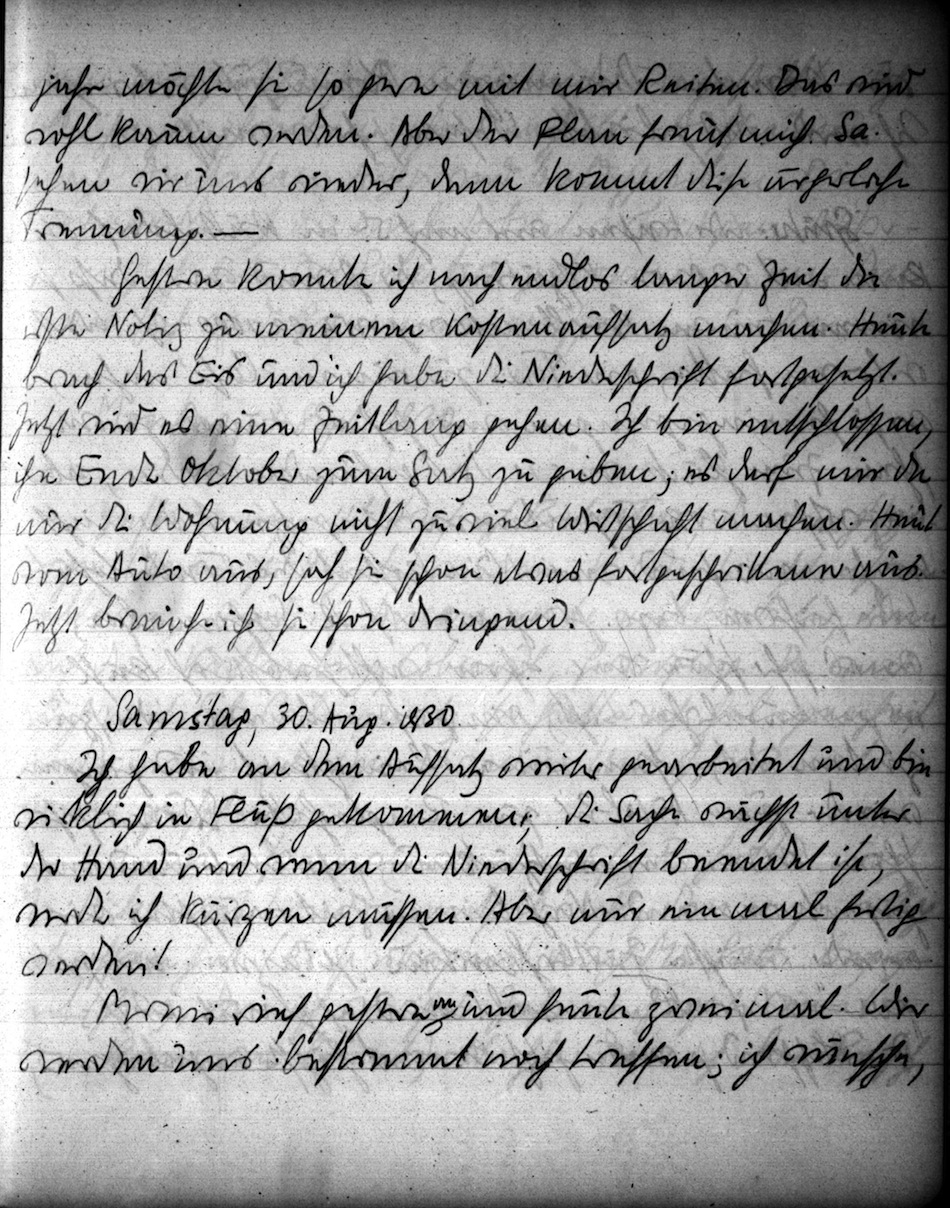 jahr möchte sie so gern mit mir Reiten. Das wird
wohl kaum werden. Aber der Plan freut mich. Sa.
sehen wir uns wieder, dann kommt diese ärgerliche
Trennung. —
Gestern konnte ich nach endlos langer Zeit die
erste Notiz zu meinem Kostenaufsatz machen. Heute
brach das Eis und ich habe die Niederschrift fortgesetzt.
Jetzt wird es eine Zeitlang gehen. Ich bin entschlossen,
ihn Ende Oktober zum Satz zu geben; es darf mir da
nur die Wohnung nicht zu viel Wirtschaft machen. Heute
vom Auto aus, sah sie schon etwas fortgeschrittener aus.
Jetzt brauche ich sie schon dringend.
Samstag, 30. Aug. 1930.
Ich habe an dem Aufsatz weiter gearbeitet und bin
wirklich in Fluß gekommen; die Sache wächst unter
der Hand und wenn die Niederschrift beendet ist,
werde ich kürzen müssen. Aber nur einmal fertig
werden!
rief gestern an und heute zweimal. Wir
werden uns bestimmt noch treffen; ich wünsche,